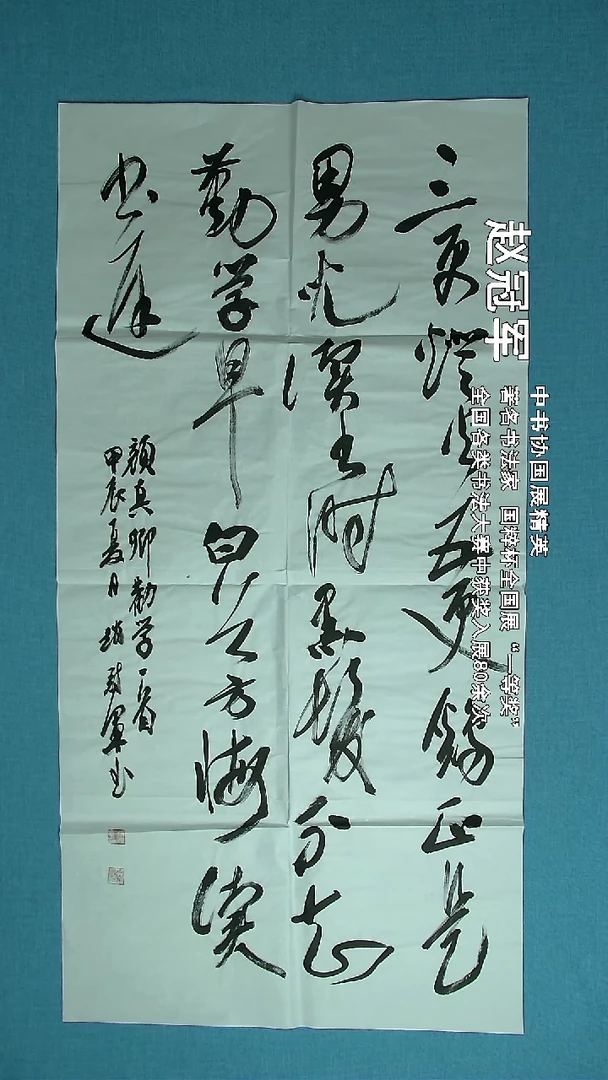 三更燈火五更鷄正是
男兒讀書時黑髮不知
勤学早白首方悔讀
书遲
顔真卿勸学一首
甲辰夏月趙冠軍书
赵冠军
中书协国展精英
著名书法家 国粹杯全国展“一等奖”
全国各类书法大赛中获奖入展80余次